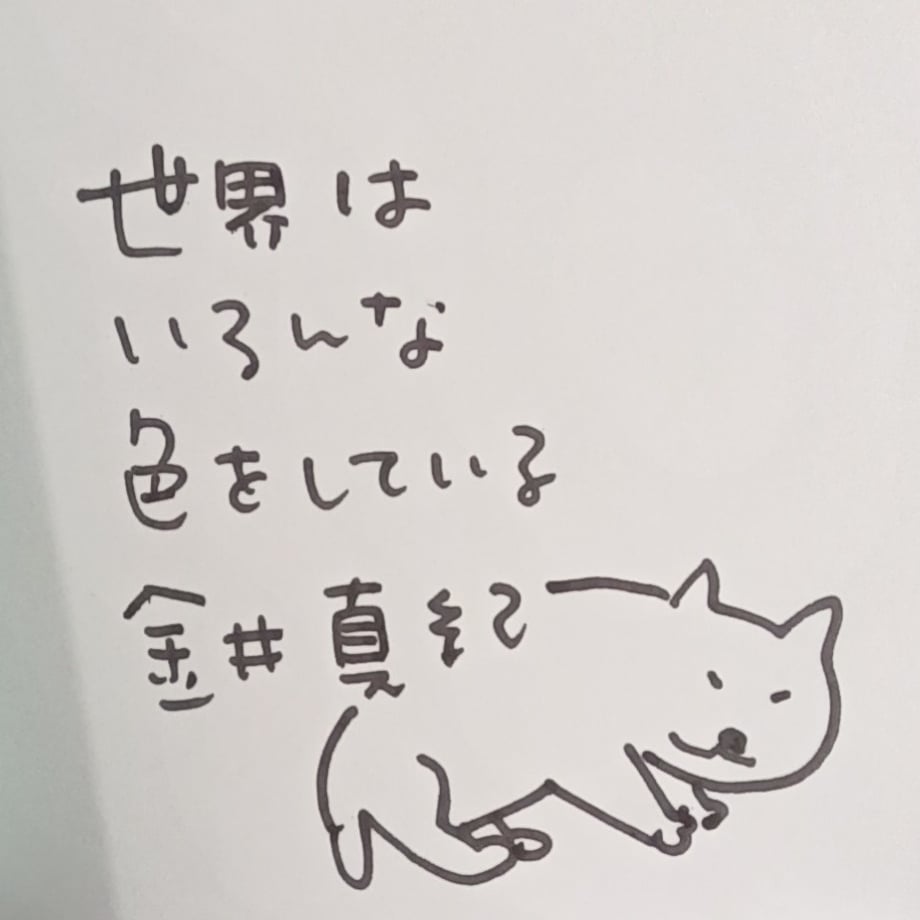 世界は
いろんな
色をしている
金井真紀